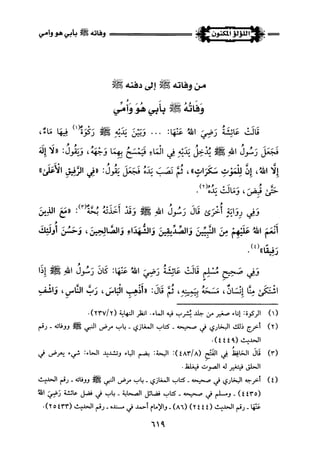 اللؤلؤ المكنون
وفاته ﷺ بأبي هو وأمي
من وفاته ﷺ إلى دفنه ﷺ
وَفَاتُهُ ﷺ بِأَبِي هُوَ وَأُمِّي
قَالَتْ عَائِشَةُ رَضِيَ اللهُ عَنْهَا: ... وَبَيْنَ يَدَيْهِ رَكْوَةٌ(١) فِيهَا مَاءٌ،
فَجَعَلَ رَسُولُ اللهِ ﷺ يُدْخِلُ يَدَيْهِ فِي الْمَاءِ فَيَمْسَحُ بِهِمَا وَجْهَهُ، وَيَقُولُ: «لَا إِلَهَ
إِلَّا اللهُ، إِنَّ لِلْمَوْتِ سَكَرَاتٍ»، ثُمَّ نَصَبَ يَدَهُ فَجَعَلَ يَقُولُ: «فِي الرَّفِيقِ الْأَعْلَى»
حَتَّى قُبِضَ، وَمَالَتْ يَدُهُ(٢).
وَفِي رِوَايَةٍ أُخْرَى قَالَ رَسُولُ اللهِ ﷺ وَقَدْ أَخَذَتْهُ بُحَّةٌ(٣): «مَعَ الَّذِينَ
أَنْعَمَ اللهُ عَلَيْهِمْ مِنَ النَّبِيِّينَ وَالصِّدِّيقِينَ وَالشُّهَدَاءِ وَالصَّالِحِينَ، وَحَسُنَ أُولَئِكَ
رَفِيقًا»(٤).
وَفِي صَحِيحِ مُسْلِمٍ قَالَتْ عَائِشَةُ رَضِيَ اللهُ عَنْهَا: كَانَ رَسُولُ اللهِ ﷺ إِذَا
اشْتَكَى مِنَّا إِنْسَانٌ، مَسَحَهُ بِيَمِينِهِ، ثُمَّ قَالَ: «أَذْهِبِ الْبَاسَ، رَبَّ النَّاسِ، وَاشْفِ
(١) الركوة: إناء صغير من جلد يُشرب فيه الماء. انظر النهاية (٢/٢٣٧).
(٢) أخرج ذلك البخاري في صحيحه ـ كتاب المغازي ـ باب مرض النبي ﷺ ووفاته ـ رقم
الحديث (٤٤٤٩).
(٣) قَالَ الحَافِظُ فِي الفَتْحِ (٨/٤٨٣): البحة: بضم الباء وتشديد الحاء: شيء يعرض في
الحلق فيتغير له الصوت فيغلظ.
(٤) أخرجه البخاري في صحيحه ـ كتاب المغازي ـ باب مرض النبي ﷺ ووفاته ـ رقم الحديث
(٤٤٣٥) ـ ومسلم في صحيحه ـ كتاب فضائل الصحابة ـ باب في فضل عائشة رَضِيَ اللهُ
عَنْهَا ـ رقم الحديث (٢٤٤٤) (٨٦) ـ والإمام أحمد في مسنده ـ رقم الحديث (٢٥٤٣٣).
٦١٩